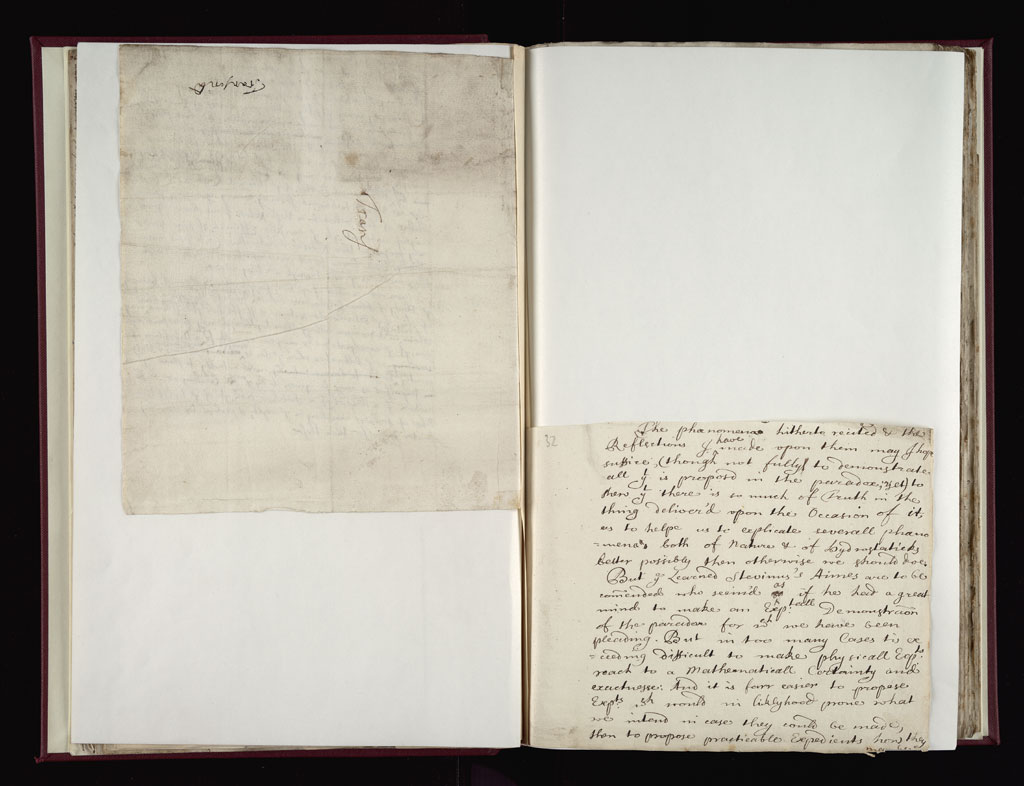 Trans
32
The phænomena hitherto recited & the
Reflections I have made upon them may I hope
suffice (though not fully) to demonstrate
all yt is propos'd in the paradox, yet) to
shew yt there is so much of Truth in the
thing deliver'd upon the Occasion of it,
as to helpe us to explicate severall phæno
=mena's both of Nature & of hydrostaticks
better possibly then otherwise we should doe.
But ye Learned Stevinus's Aimes are to be
comended who seem'd as if he had a great
mind to make an Exptall Demonstracon
of the paradox for wch we have been
pleading. But in too many Cases tis ex
=ceeding difficult to make physicall Expts
reach to a Mathematicall Certainty and
exactnesse. And it is farr easier to propose
Expts wch would in liklyhood prove what
we intend in case they could be made,
then to propose practicable Expedients how they